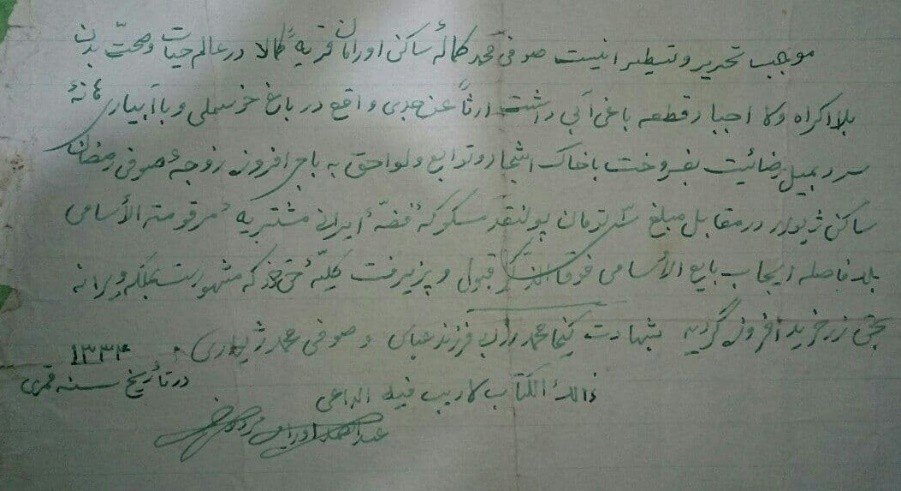 موجب تحریر و تسطیر اینست صوفی محمد کمالهٔ ساکن اورامان قریهٔ کمالا در عالم حیات و صحّت بدن
بلا اکراه ولا اجبار قطعه باغی آبی داشت ارثاً عن جدی واقع در باغ و با آبیاری
بفروخت با خاک اشجار و توابع ولواحق به باجی افروز زوجهٔ صوفی رمضان
ساکن ژیوار در مقابل مبلغ تومان پولنقد مسکوکهٔ فضّهٔ ایرانی مشتریه مرقومة الأسامی
بلا فاصله ایجاب بایع الأسامی فوقانی قبولی و پزیرفت که مشهور است بملکه ویرانه
بحق زر خرید افروز گردید بشهادت کیخا محمد فرزند عباس و صوفی محمد ژیواری
۱۳۳۴
در تأریخ سنه قمری
ذالك الکتاب لا ریب فیه الداعی